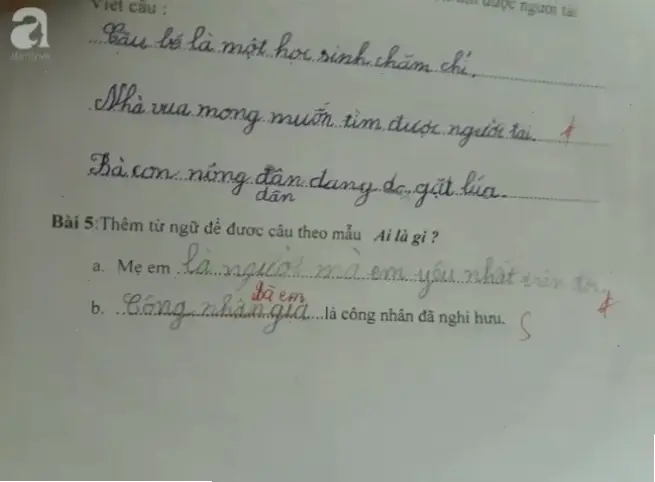 Viết câu :
được người tài
a
Cậu bé là một học sinh chăm chỉ.
Nhà vua mong muốn tìm được người tài.
Bà con nông dân đang đi gặt lúa.
dân
Bài 5:Thêm từ ngữ để được câu theo mẫu Ai là gì ?
a. Mẹ em là người mà em yêu nhất trên đời
Bà em
b. Công nhân già...là công nhân đã nghỉ hưu. S